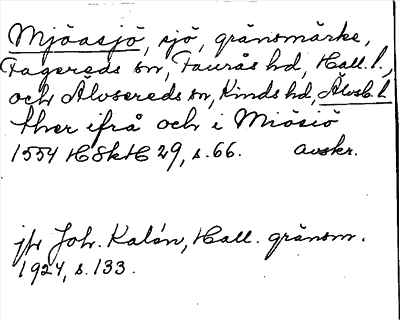 Mjöasjö, sjö, gränsmärke,
Fagereds sn, Faurås hd, Hall. l.,
och Älvsereds sn, Kinds hd, Älvsb. l.
ther ifrå och i Miösiö
1554 HSkH 29, s. 66. avskr.
jfr Joh. Kalén, Hall. gränsm.
1924, s. 133.